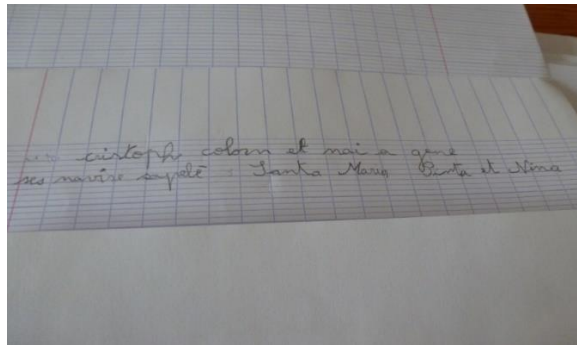 cristoph colom et nai a gene
ses navire sapelè Santa Maria Pinta et Nina